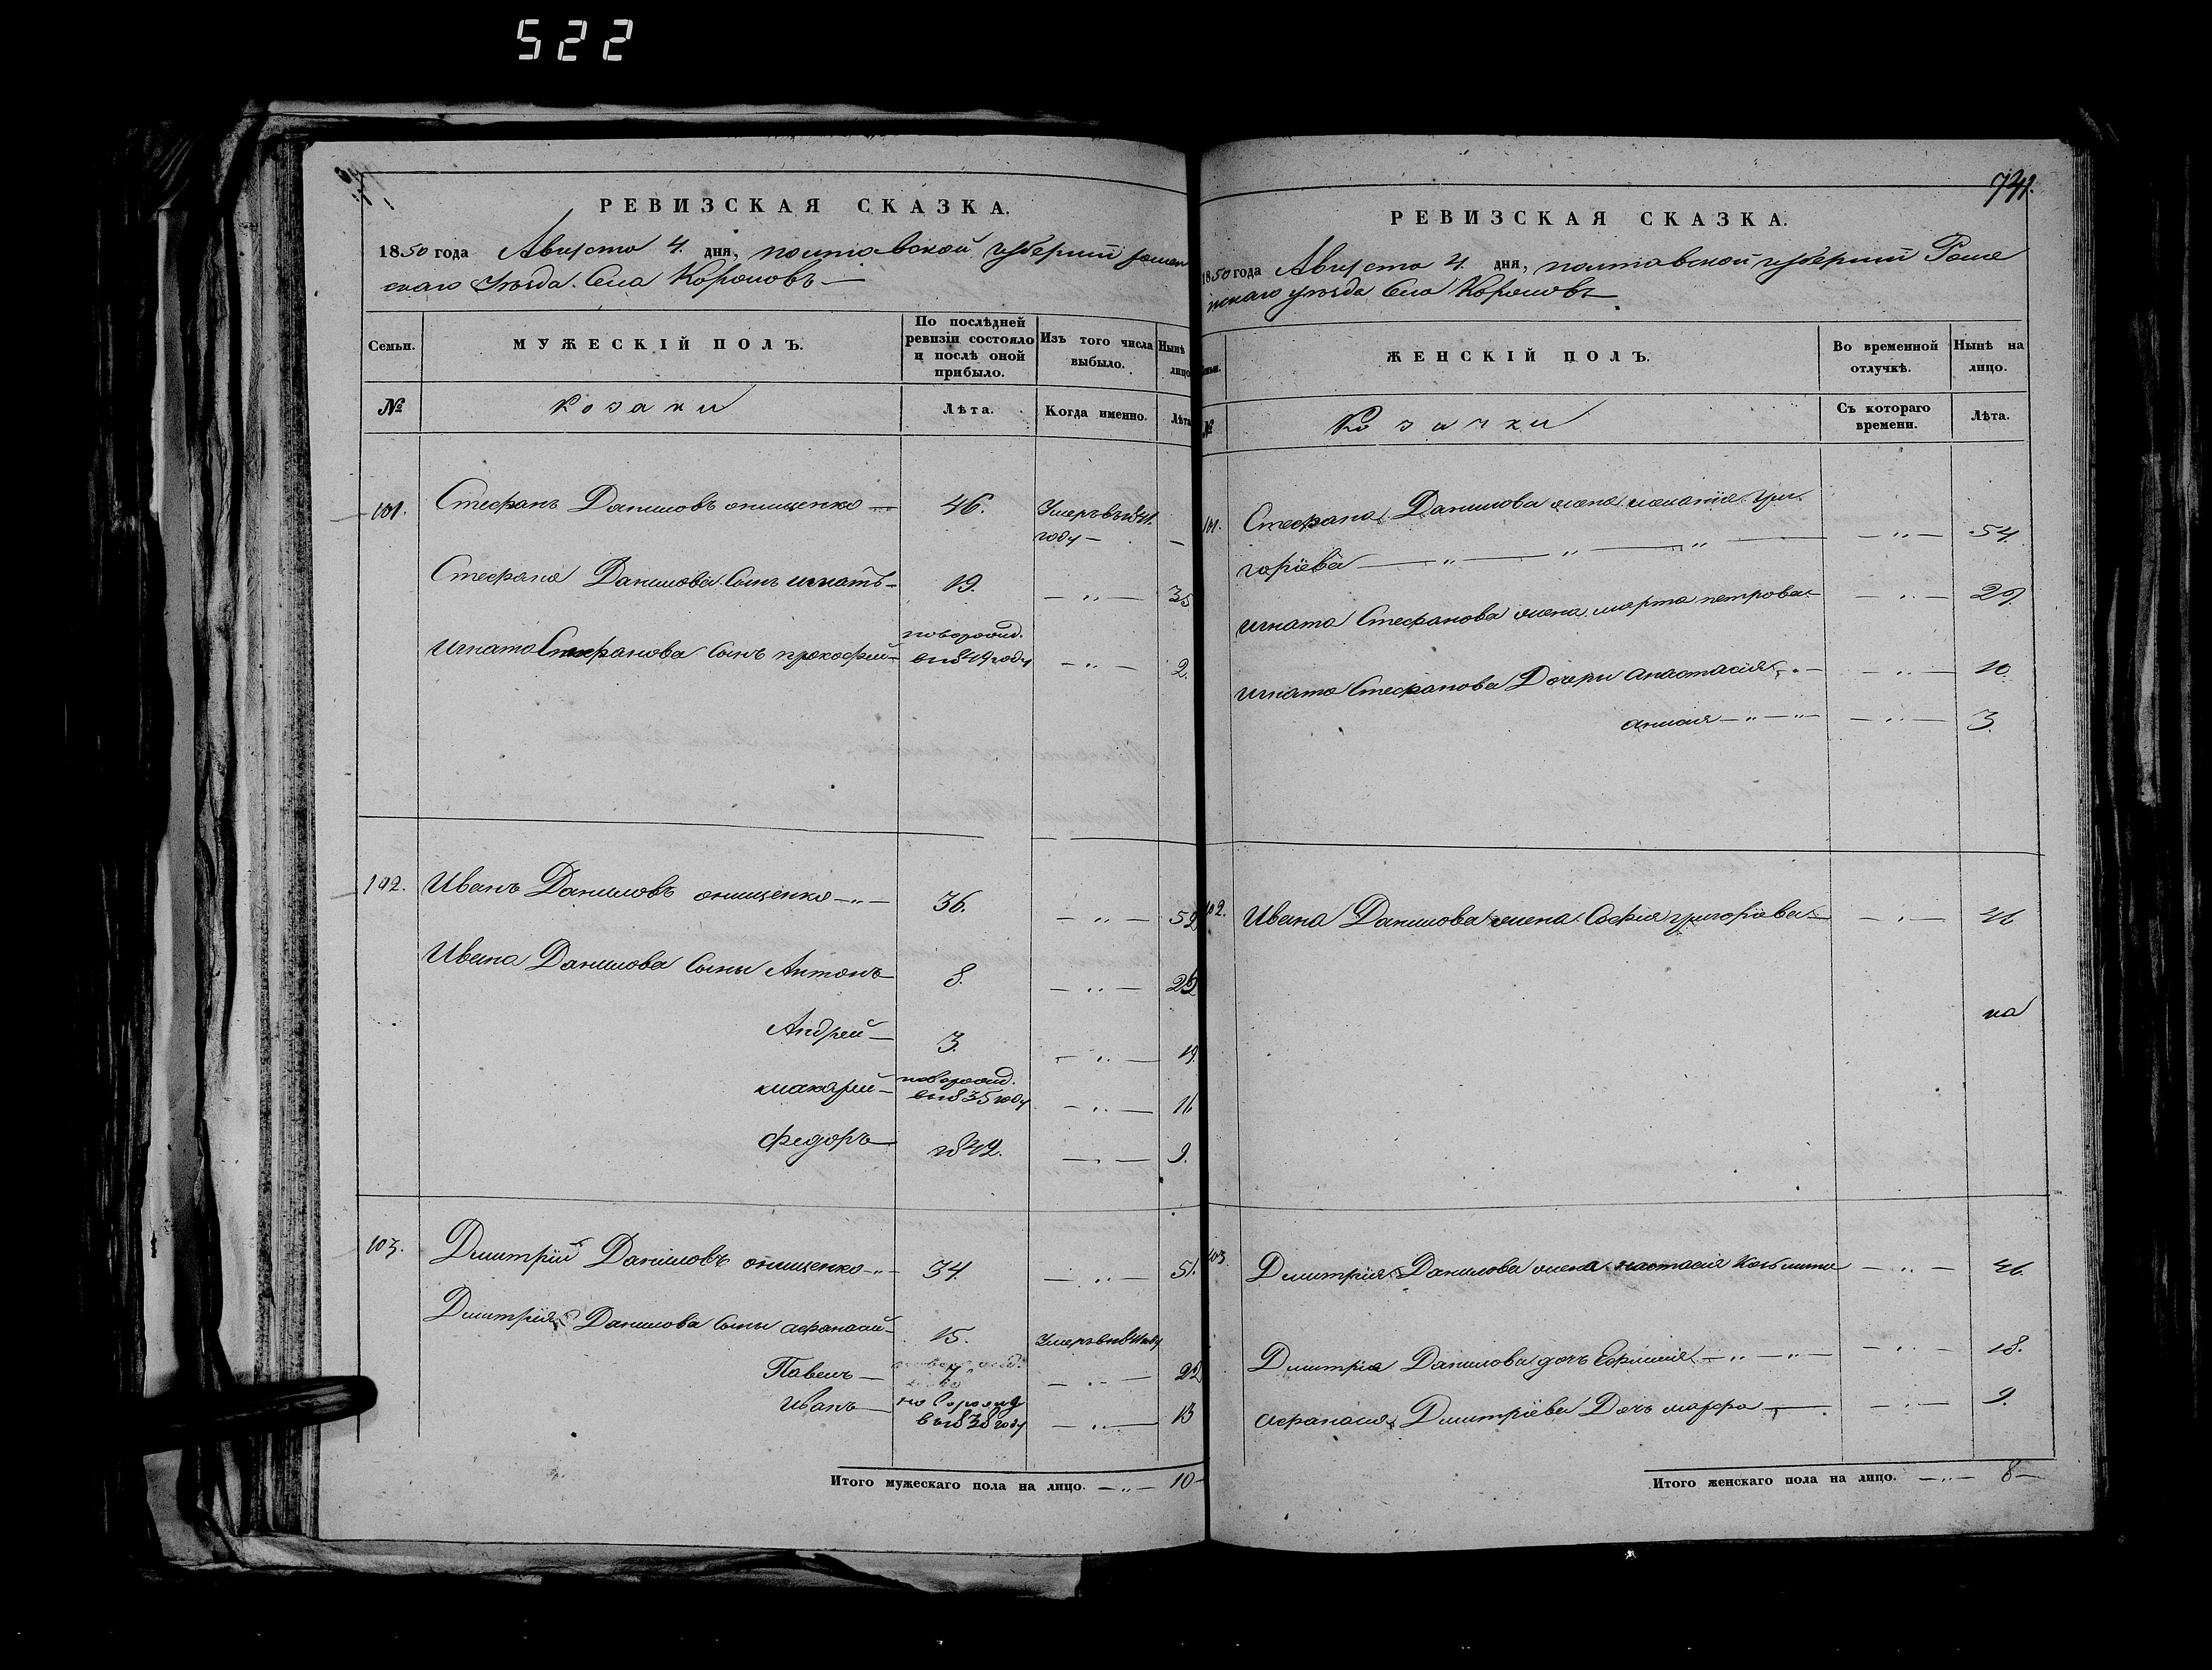 522
РЕВИЗСКАЯ СКАЗКА.
1850 года Августа 4. дня, полтавской губернии ромен
скаго уѣзда. Села Корововъ —
Семьи.
МУЖЕСКІЙ ПОЛЪ.
По послѣдней ревизіи состояло и послѣ оной прибыло.
Изъ того числа выбыло.
Нынѣ лицо
№
Козаки
Лѣта.
Когда именно.
Лѣта
101. Стефанъ Даниловъ онищенко — 46. Умеръ въ 1841. году — —
Стефана Данилова Сынъ игнатъ — 19. — „ — 35
Игната Стефанова Сынъ прокофий — новорожд. в 1849 году — „ — 2.
102. Иванъ Даниловъ онищенко — „ — 36. — „ — 52
Ивана Данилова Сыны Антонъ 8. — „ —
Андрей — 3. — „ — 19.
макарий — новорожд. в 1835 году — „ — 16
федоръ 1842. — „ — 9.
103. Дмитрий Даниловъ онищенко — „ — 34. — „ — 51.
Дмитрия Данилова Сыны афанасий — 15. Умеръ в
Павелъ — 7 — „ —
Иванъ — новорожд в 1838 году — „ — 13
Итого мужескаго пола на лицо. — „ — 10 —
731.
РЕВИЗСКАЯ СКАЗКА.
1850 года Августа 4. дня, полтавской губернии Роме
нскаго уѣзда Села Корововъ
ЖЕНСКІЙ ПОЛЪ.
Во временной отлучкѣ.
Нынѣ на лицо.
№
Козачки
Съ котораго времени.
Лѣта.
101. Стефана Данилова жена мелания гри
горіева — „ — „ — „ — — „ — 54.
игната Стефанова жена марта петрова — — „ — 29.
игната Стефанова Дочери анастасия — „ — — „ — 10
— „ — „ — „ — 3.
102. Ивана Данилова жена София григоріева — — „ — 46
на
103 Дмитрия Данилова жена настасия — „ — 46.
Дмитрия Данилова дочь Ефимия — „ — „ — — „ — 18.
афанасия Дмитріева Дочь марфа — — „ — 9.
Итого женскаго пола на лицо. — „ — 8 —